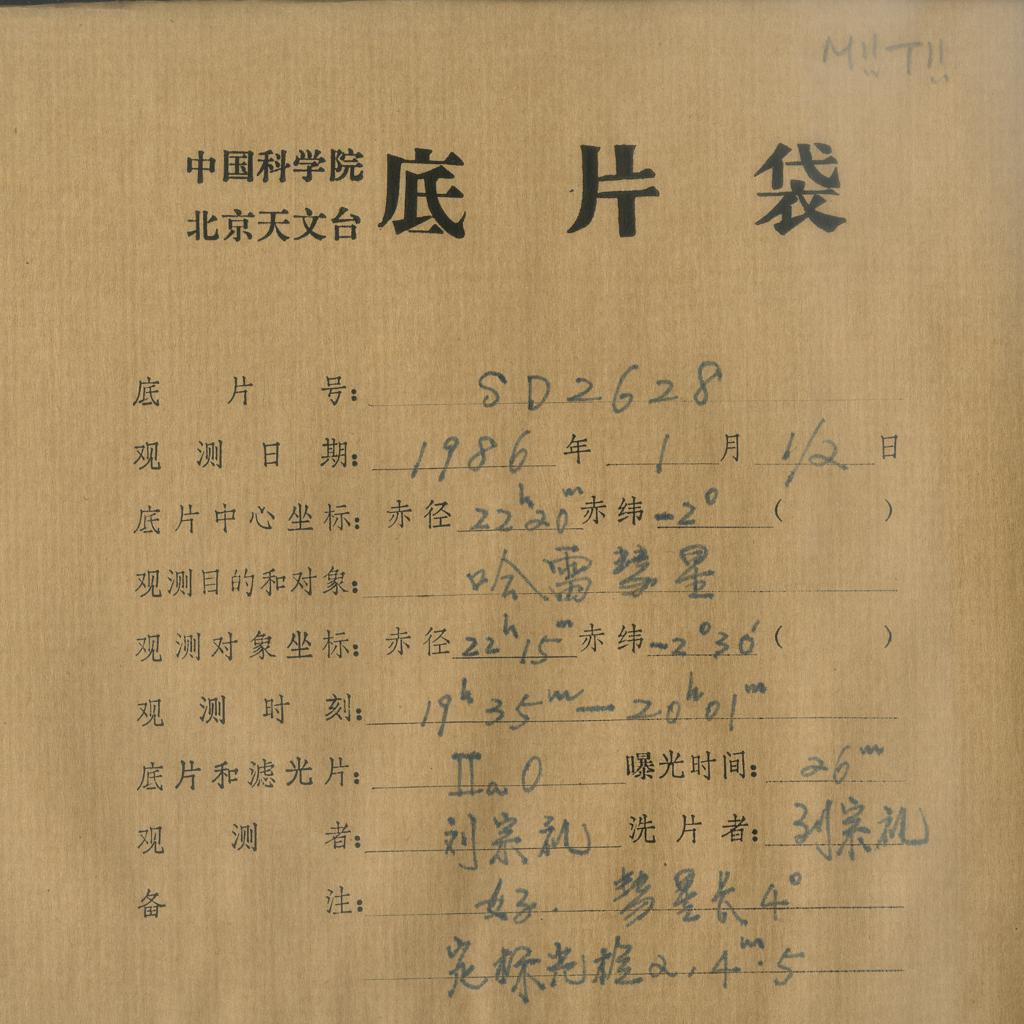 M!! T!!
中国科学院
北京天文台
底片袋
底片号： SD2628
观测日期： 1986 年 1 月 1/2 日
底片中心坐标： 赤径 22ʰ20ᵐ 赤纬 -2° (　　)
观测目的和对象： 哈雷彗星
观测对象坐标： 赤径 22ʰ15ᵐ 赤纬 -2°30′ (　　)
观测时刻： 19ʰ35ᵐ—20ʰ01ᵐ
底片和滤光片： IIaO 曝光时间： 26ᵐ
观测者： 刘宗礼 洗片者： 刘宗礼
备注： 好. 彗星长4°
定标光楔2, 4ᵐ.5